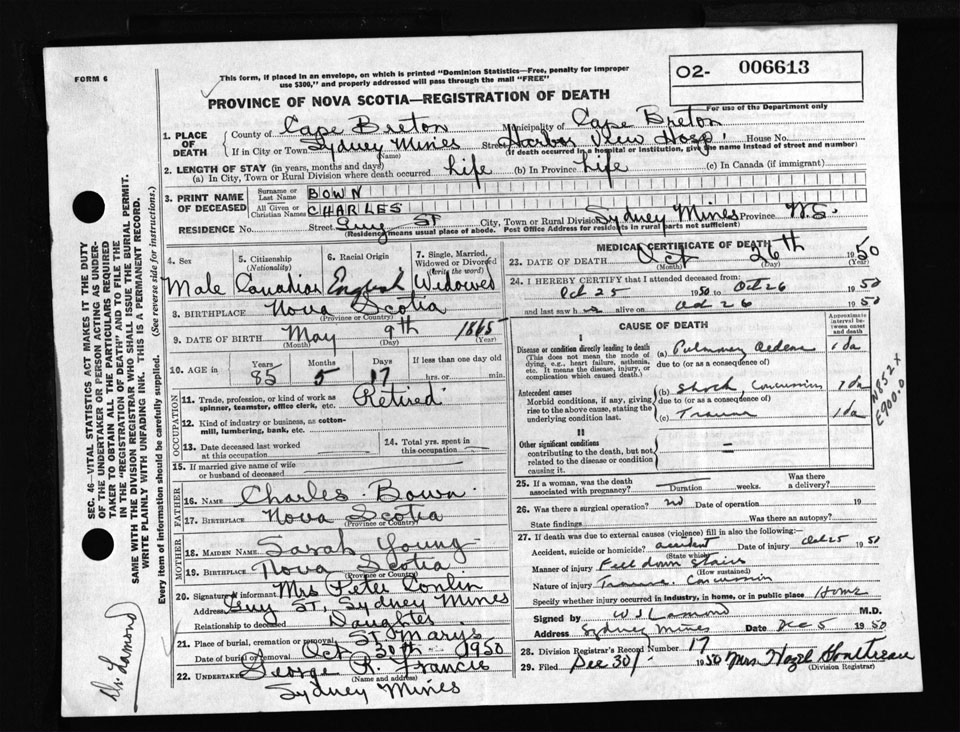 FORM 6
This form, if placed in an envelope, on which is printed "Dominion Statistics—Free, penalty for improper
use $300," and properly addressed will pass through the mail "FREE"
O2- 006613
For use of the Department only
PROVINCE OF NOVA SCOTIA—REGISTRATION OF DEATH
1. PLACE OF DEATH
County of Cape Breton Municipality of Cape Breton
If in City or Town Sydney Mines Street Harbor View Hosp. House No.
(Name) (If death occurred in a hospital or institution, give the name instead of street and number)
2. LENGTH OF STAY (in years, months and days)
(a) In City, Town or Rural Division where death occurred Life (b) In Province Life (c) In Canada (if immigrant)
3. PRINT NAME OF DECEASED
Surname or Last Name BOWN
All Given or Christian Names CHARLES
RESIDENCE No. Street Guy St City, Town or Rural Division Sydney Mines Province N.S.
(Residence means usual place of abode. Post Office Address for residents in rural parts not sufficient)
4. Sex 5. Citizenship (Nationality) 6. Racial Origin 7. Single, Married, Widowed or Divorced (write the word)
Male Canadian English Widowed
8. BIRTHPLACE Nova Scotia
(Province or Country)
9. DATE OF BIRTH May 9th 1865
(Month) (Day) (Year)
10. AGE in Years 85 Months 5 Days 17 If less than one day old hrs. or min.
OCCUPATION
11. Trade, profession, or kind of work as spinner, teamster, office clerk, etc. Retired
12. Kind of industry or business, as cotton-mill, lumbering, bank, etc.
13. Date deceased last worked at this occupation
14. Total yrs. spent in this occupation
15. If married give name of wife or husband of deceased
FATHER
16. NAME Charles Bown
17. BIRTHPLACE Nova Scotia
(Province or Country)
MOTHER
18. MAIDEN NAME Sarah Young
19. BIRTHPLACE Nova Scotia
(Province or Country)
20. Signature of informant Mrs Peter Conlin
Address Guy St, Sydney Mines
Relationship to deceased Daughter
21. Place of burial, cremation or removal St Marys
Date of burial or removal Oct 30th 1950
22. UNDERTAKER George R. Francis
(Name and address)
Sydney Mines
MEDICAL CERTIFICATE OF DEATH
23. DATE OF DEATH Oct 26th 1950
(Month) (Day) (Year)
24. I HEREBY CERTIFY that I attended deceased from:
Oct 25 1950 to Oct 26 1950
and last saw h alive on Oct 26 1950
CAUSE OF DEATH
Approximate interval between onset and death
I
Disease or condition directly leading to death
(This does not mean the mode of dying, e.g., heart failure, asthenia, etc. It means the disease, injury, or complication which caused death.)
(a) Pulmonary Oedema 1 da
due to (or as a consequence of)
Antecedent causes
Morbid conditions, if any, giving rise to the above cause, stating the underlying condition last.
(b) Shock Concussion 1 da
due to (or as a consequence of)
(c) Trauma 1 da
II
Other significant conditions
contributing to the death, but not related to the disease or condition causing it.
N852 x
E900.0
25. If a woman, was the death associated with pregnancy? Duration weeks. Was there a delivery?
26. Was there a surgical operation? no Date of operation 19
State findings Was there an autopsy?
27. If death was due to external causes (violence) fill in also the following:
Accident, suicide or homicide? accident Date of injury Oct 25 1950
(State which)
Manner of injury Fell down stairs
(How sustained)
Nature of injury Trauma. Concussion
Specify whether injury occurred in industry, in home, or in public place Home
Signed by W J Lamond M.D.
Address Sydney Mines Date Dec 5 1950
28. Division Registrar's Record Number 17
29. Filed Dec 30/- 1950 Mrs. Hazel
(Division Registrar)
SEC. 46—VITAL STATISTICS ACT MAKES IT THE DUTY
OF THE UNDERTAKER OR PERSON ACTING AS UNDER-
TAKER TO OBTAIN ALL THE PARTICULARS REQUIRED
IN THE "REGISTRATION OF DEATH" AND TO FILE THE
SAME WITH THE DIVISION REGISTRAR WHO SHALL ISSUE THE BURIAL PERMIT.
WRITE PLAINLY WITH UNFADING INK. THIS IS A PERMANENT RECORD.
Every item of information should be carefully supplied. (See reverse side for instructions.)
Dr. Lamond